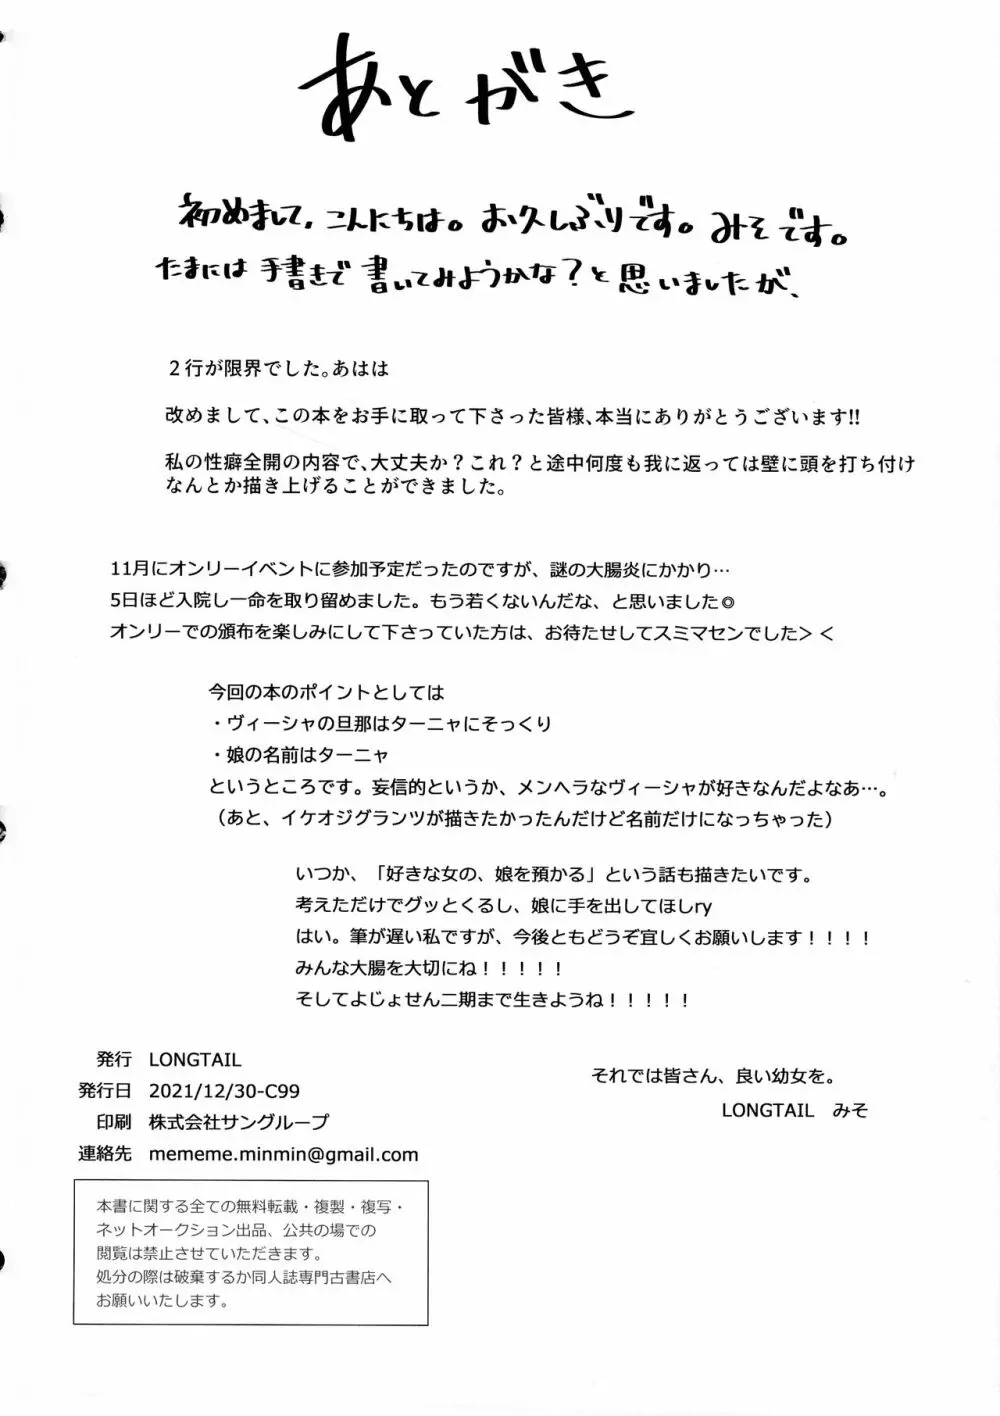 あとがき
初めまして,こんにちは。お久しぶりです。みそです。
たまには手書きで書いてみようかな?と思いましたが、
２行が限界でした。あはは
改めまして、この本をお手に取って下さった皆様、本当にありがとうございます!!
私の性癖全開の内容で、大丈夫か？これ？と途中何度も我に返っては壁に頭を打ち付け
なんとか描き上げることができました。
11月にオンリーイベントに参加予定だったのですが、謎の大腸炎にかかり…
5日ほど入院し一命を取り留めました。もう若くないんだな、と思いました◎
オンリーでの頒布を楽しみにして下さっていた方は、お待たせしてスミマセンでした＞＜
今回の本のポイントとしては
・ヴィーシャの旦那はターニャにそっくり
・娘の名前はターニャ
というところです。妄信的というか、メンヘラなヴィーシャが好きなんだよなあ…。
（あと、イケオジグランツが描きたかったんだけど名前だけになっちゃった）
いつか、「好きな女の、娘を預かる」という話も描きたいです。
考えただけでグッとくるし、娘に手を出してほしry
はい。筆が遅い私ですが、今後ともどうぞ宜しくお願いします！！！！
みんな大腸を大切にね！！！！！
そしてよじょせん二期まで生きようね！！！！！
それでは皆さん、良い幼女を。
LONGTAIL　みそ
発行　LONGTAIL
発行日　2021/12/30-C99
印刷　株式会社サングループ
連絡先　mememe.minmin@gmail.com
本書に関する全ての無料転載・複製・複写・
ネットオークション出品、公共の場での
閲覧は禁止させていただきます。
処分の際は破棄するか同人誌専門古書店へ
お願いいたします。